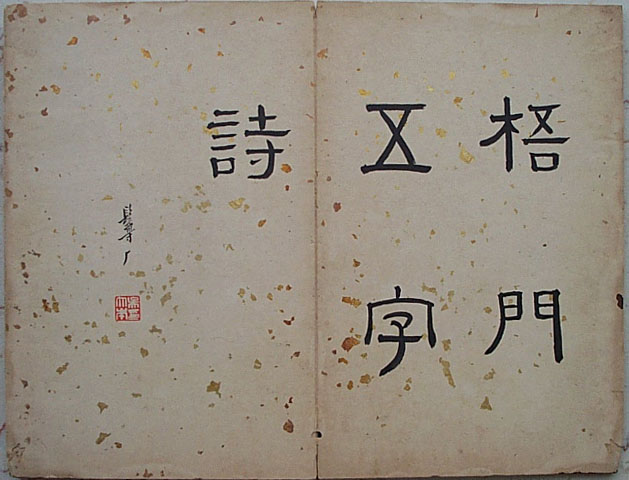 梧門
五字
詩